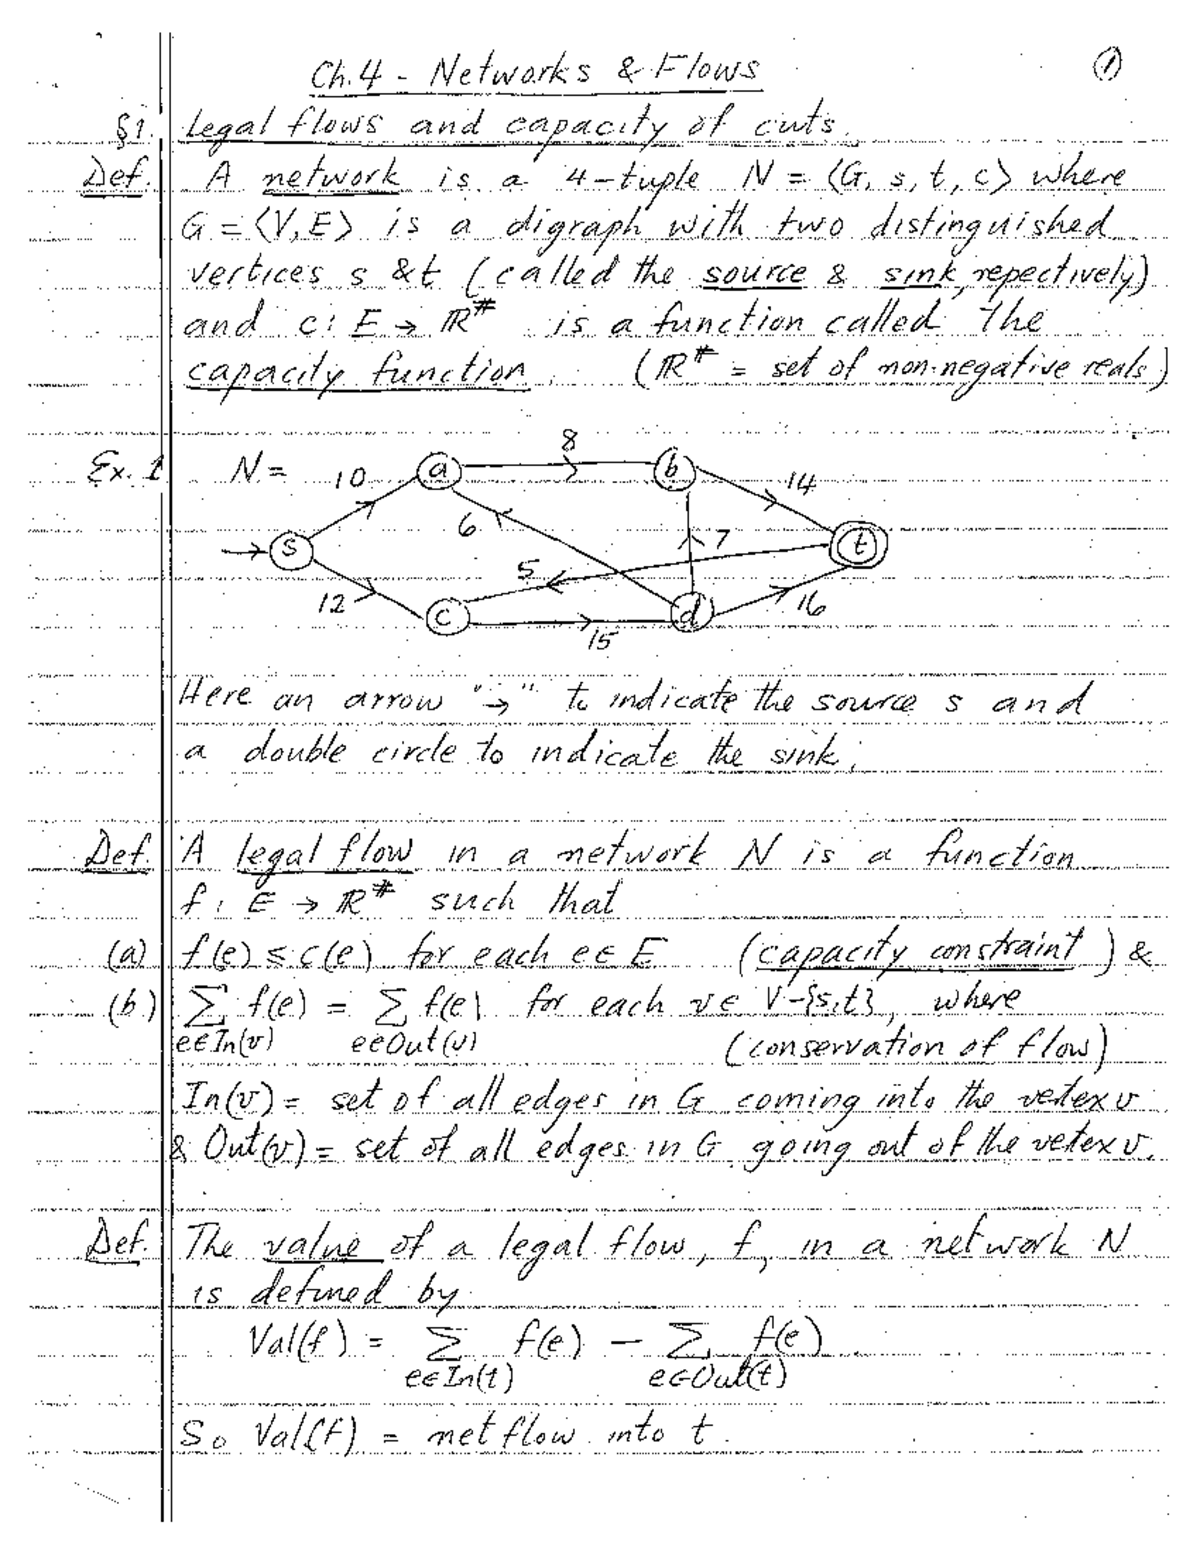 ①
Ch.4 - Networks & Flows
§1. Legal flows and capacity of cuts.
Def. A network is a 4-tuple N = ⟨G, s, t, c⟩ where
G = ⟨V, E⟩ is a digraph with two distinguished
vertices s & t (called the source & sink, repectively)
and c: E → ℝ# is a function called the
capacity function. (ℝ# = set of non-negative reals)
Ex. 1 N =
8
10 a b 14
6
s 7 t
5
12 c d 16
15
Here an arrow "→" to indicate the source s and
a double circle to indicate the sink.
Def. A legal flow in a network N is a function
f: E → ℝ# such that
(a) f(e) ≤ c(e) for each e ∈ E (capacity constraint) &
(b) Σ f(e) = Σ f(e) for each v ∈ V-{s,t}, where
e∈In(v) e∈Out(v) (conservation of flow)
In(v) = set of all edges in G coming into the vertex v
& Out(v) = set of all edges in G going out of the vetex v.
Def. The value of a legal flow, f, in a network N
is defined by
Val(f) = Σ f(e) - Σ f(e)
e∈In(t) e∈Out(t)
So Val(f) = net flow into t.